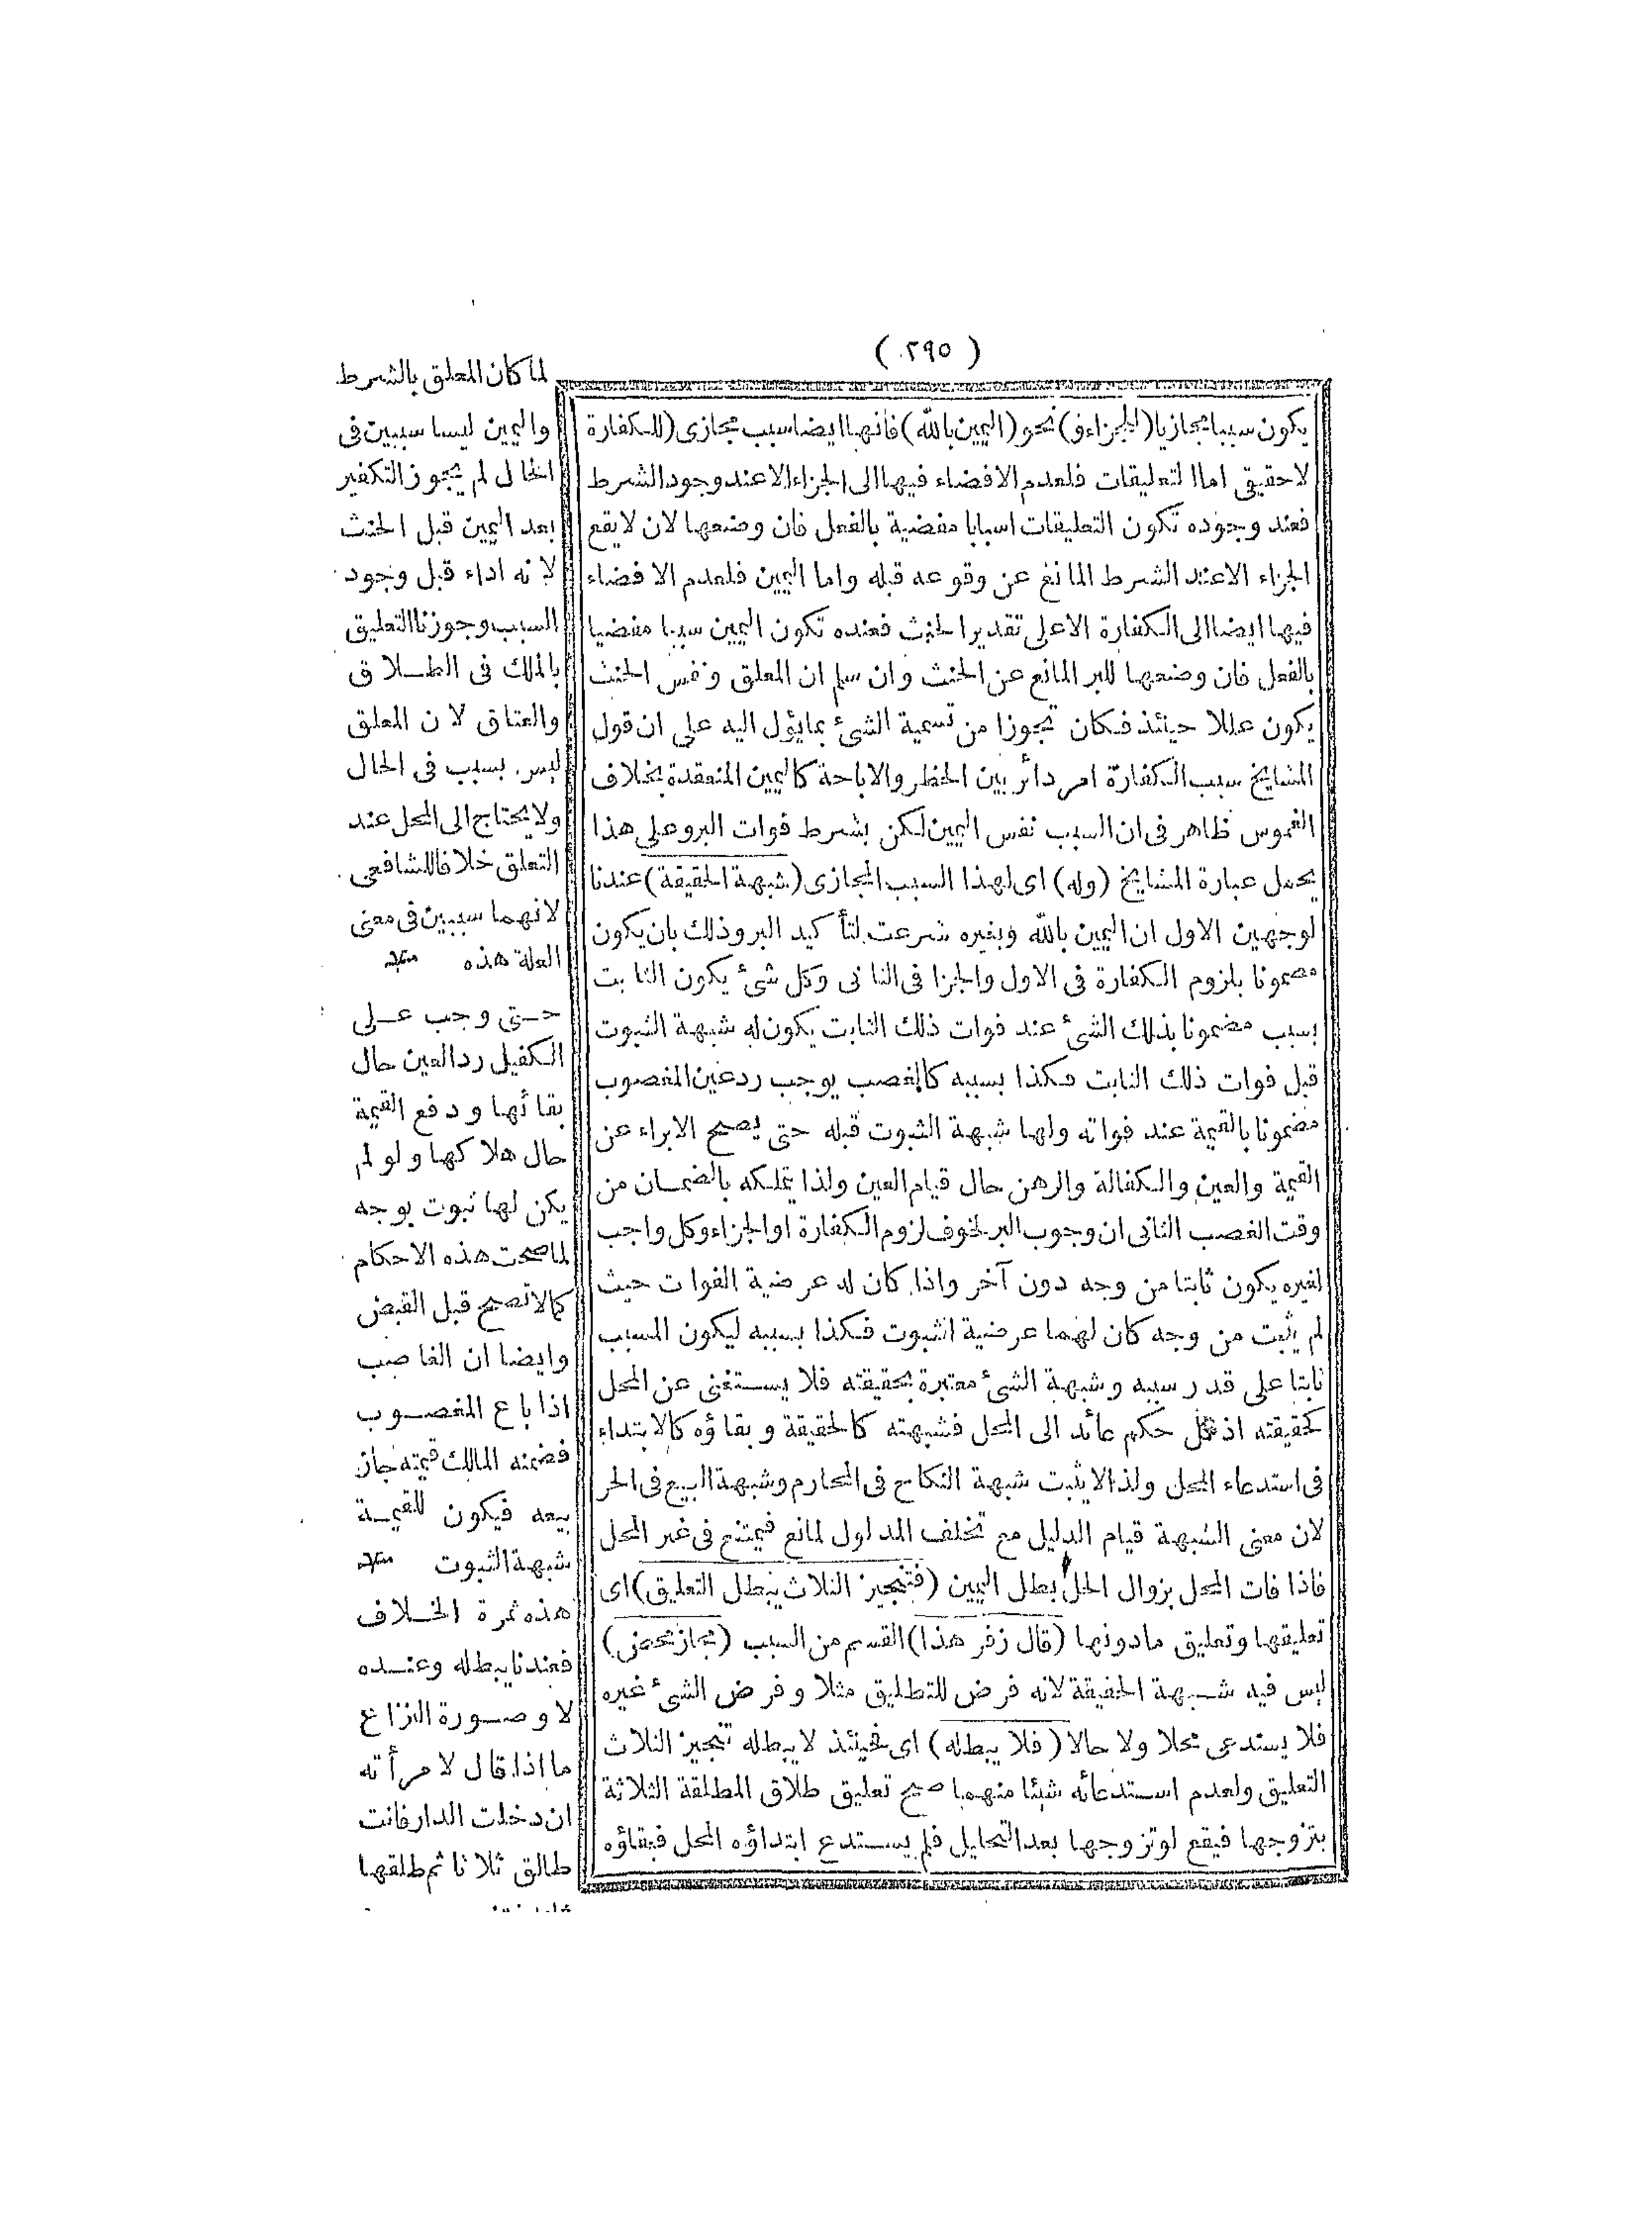 ( ٢٩٥ )
يكون سببا مجازيا (للجزاء و) نحو (اليمين بالله) فانها ايضا سبب مجازى (للكفارة
لا حقيقى اما التعليقات فلعدم الافضاء فيها الى الجزاء الا عند وجود الشرط
فعند وجوده تكون التعليقات اسبابا مفضية بالفعل فان وضعها لان لا يقع
الجزاء الا عند الشرط المانع عن وقوعه قبله واما اليمين فلعدم الافضاء
فيها ايضا الى الكفارة الا على تقدير الحنث فعنده تكون اليمين سببا مفضيا
بالفعل فان وضعها للبر المانع عن الحنث وان سلم ان المعلق ونفس الحنث
يكون عللا حينئذ فكان تجوزا من تسمية الشئ بما يؤل اليه على ان قول
المشايخ سبب الكفارة امر دائر بين الحظر والاباحة كاليمين المنعقدة بخلاف
الغموس ظاهر فى ان السبب نفس اليمين لكن بشرط فوات البر وعلى هذا
يحمل عبارة المشايخ (وله) اى لهذا السبب المجازى (شبهة الحقيقة) عندنا
لوجهين الاول ان اليمين بالله وبغيره شرعت لتأكيد البر وذلك بان يكون
مضمونا بلزوم الكفارة فى الاول والجزا فى الثانى وكل شئ يكون الثابت
بسبب مضمونا بذلك الشئ عند فوات ذلك الثابت يكون له شبهة الثبوت
قبل فوات ذلك الثابت فكذا بسببه كالغصب يوجب رد عين المغصوب
مضمونا بالقيمة عند فواته ولها شبهة الثبوت قبله حتى يصح الابراء عن
القيمة والعين والكفالة والرهن حال قيام العين ولذا يتملكه بالضمان من
وقت الغصب الثانى ان وجوب البر لخوف لزوم الكفارة او الجزاء وكل واجب
لغيره يكون ثابتا من وجه دون آخر واذا كان له عرضية الفوات حيث
لم يثبت من وجه كان لهما عرضية الثبوت فكذا بسببه ليكون المسبب
ثابتا على قدر سببه وشبهة الشئ معتبرة بحقيقته فلا يستغنى عن المحل
كحقيقته اذ كل حكم عائد الى المحل فشبهته كالحقيقة وبقاؤه كالابتداء
فى استدعاء المحل ولذا لا يثبت شبهة النكاح فى المحارم وشبهة البيع فى الحر
لان معنى الشبهة قيام الدليل مع تخلف المدلول لمانع فيمتنع فى غير المحل
فاذا فات المحل بزوال الحل بطل اليمين (فتنجيز الثلاث يبطل التعليق) اى
تعليقها وتعليق ما دونها (قال زفر هذا) القسم من السبب (مجاز محض)
ليس فيه شبهة الحقيقة لانه فرض للتطليق مثلا وفرض الشئ غيره
فلا يستدعى محلا ولا حالا (فلا يبطله) اى فحينئذ لا يبطله تنجيز الثلاث
التعليق ولعدم استدعائه شيئا منهما صح تعليق طلاق المطلقة الثلاثة
بتزوجها فيقع لو تزوجها بعد التحليل فلم يستدع ابتداؤه المحل فبقاؤه
لما كان المعلق بالشرط
واليمين ليسا سببين فى
الحال لم يجوز التكفير
بعد اليمين قبل الحنث
لانه اداء قبل وجود
السبب وجوزنا التعليق
بالملك فى الطلاق
والعتاق لان المعلق
ليس بسبب فى الحال
ولا يحتاج الى المحل عند
التعلق خلافا للشافعى
لانهما سببين فى معنى
العلة هذه
حتى وجب على
الكفيل رد العين حال
بقائها ودفع القيمة
حال هلاكها ولو لم
يكن لها ثبوت بوجه
لما صحت هذه الاحكام
كما لا تصح قبل القبض
وايضا ان الغاصب
اذا باع المغصوب
فضمنه المالك قيمته جاز
بيعه فيكون للقيمة
شبهة الثبوت
هذه ثمرة الخلاف
فعندنا يبطله وعنده
لا وصورة النزاع
ما اذا قال لامرأته
ان دخلت الدار فانت
طالق ثلاثا ثم طلقها